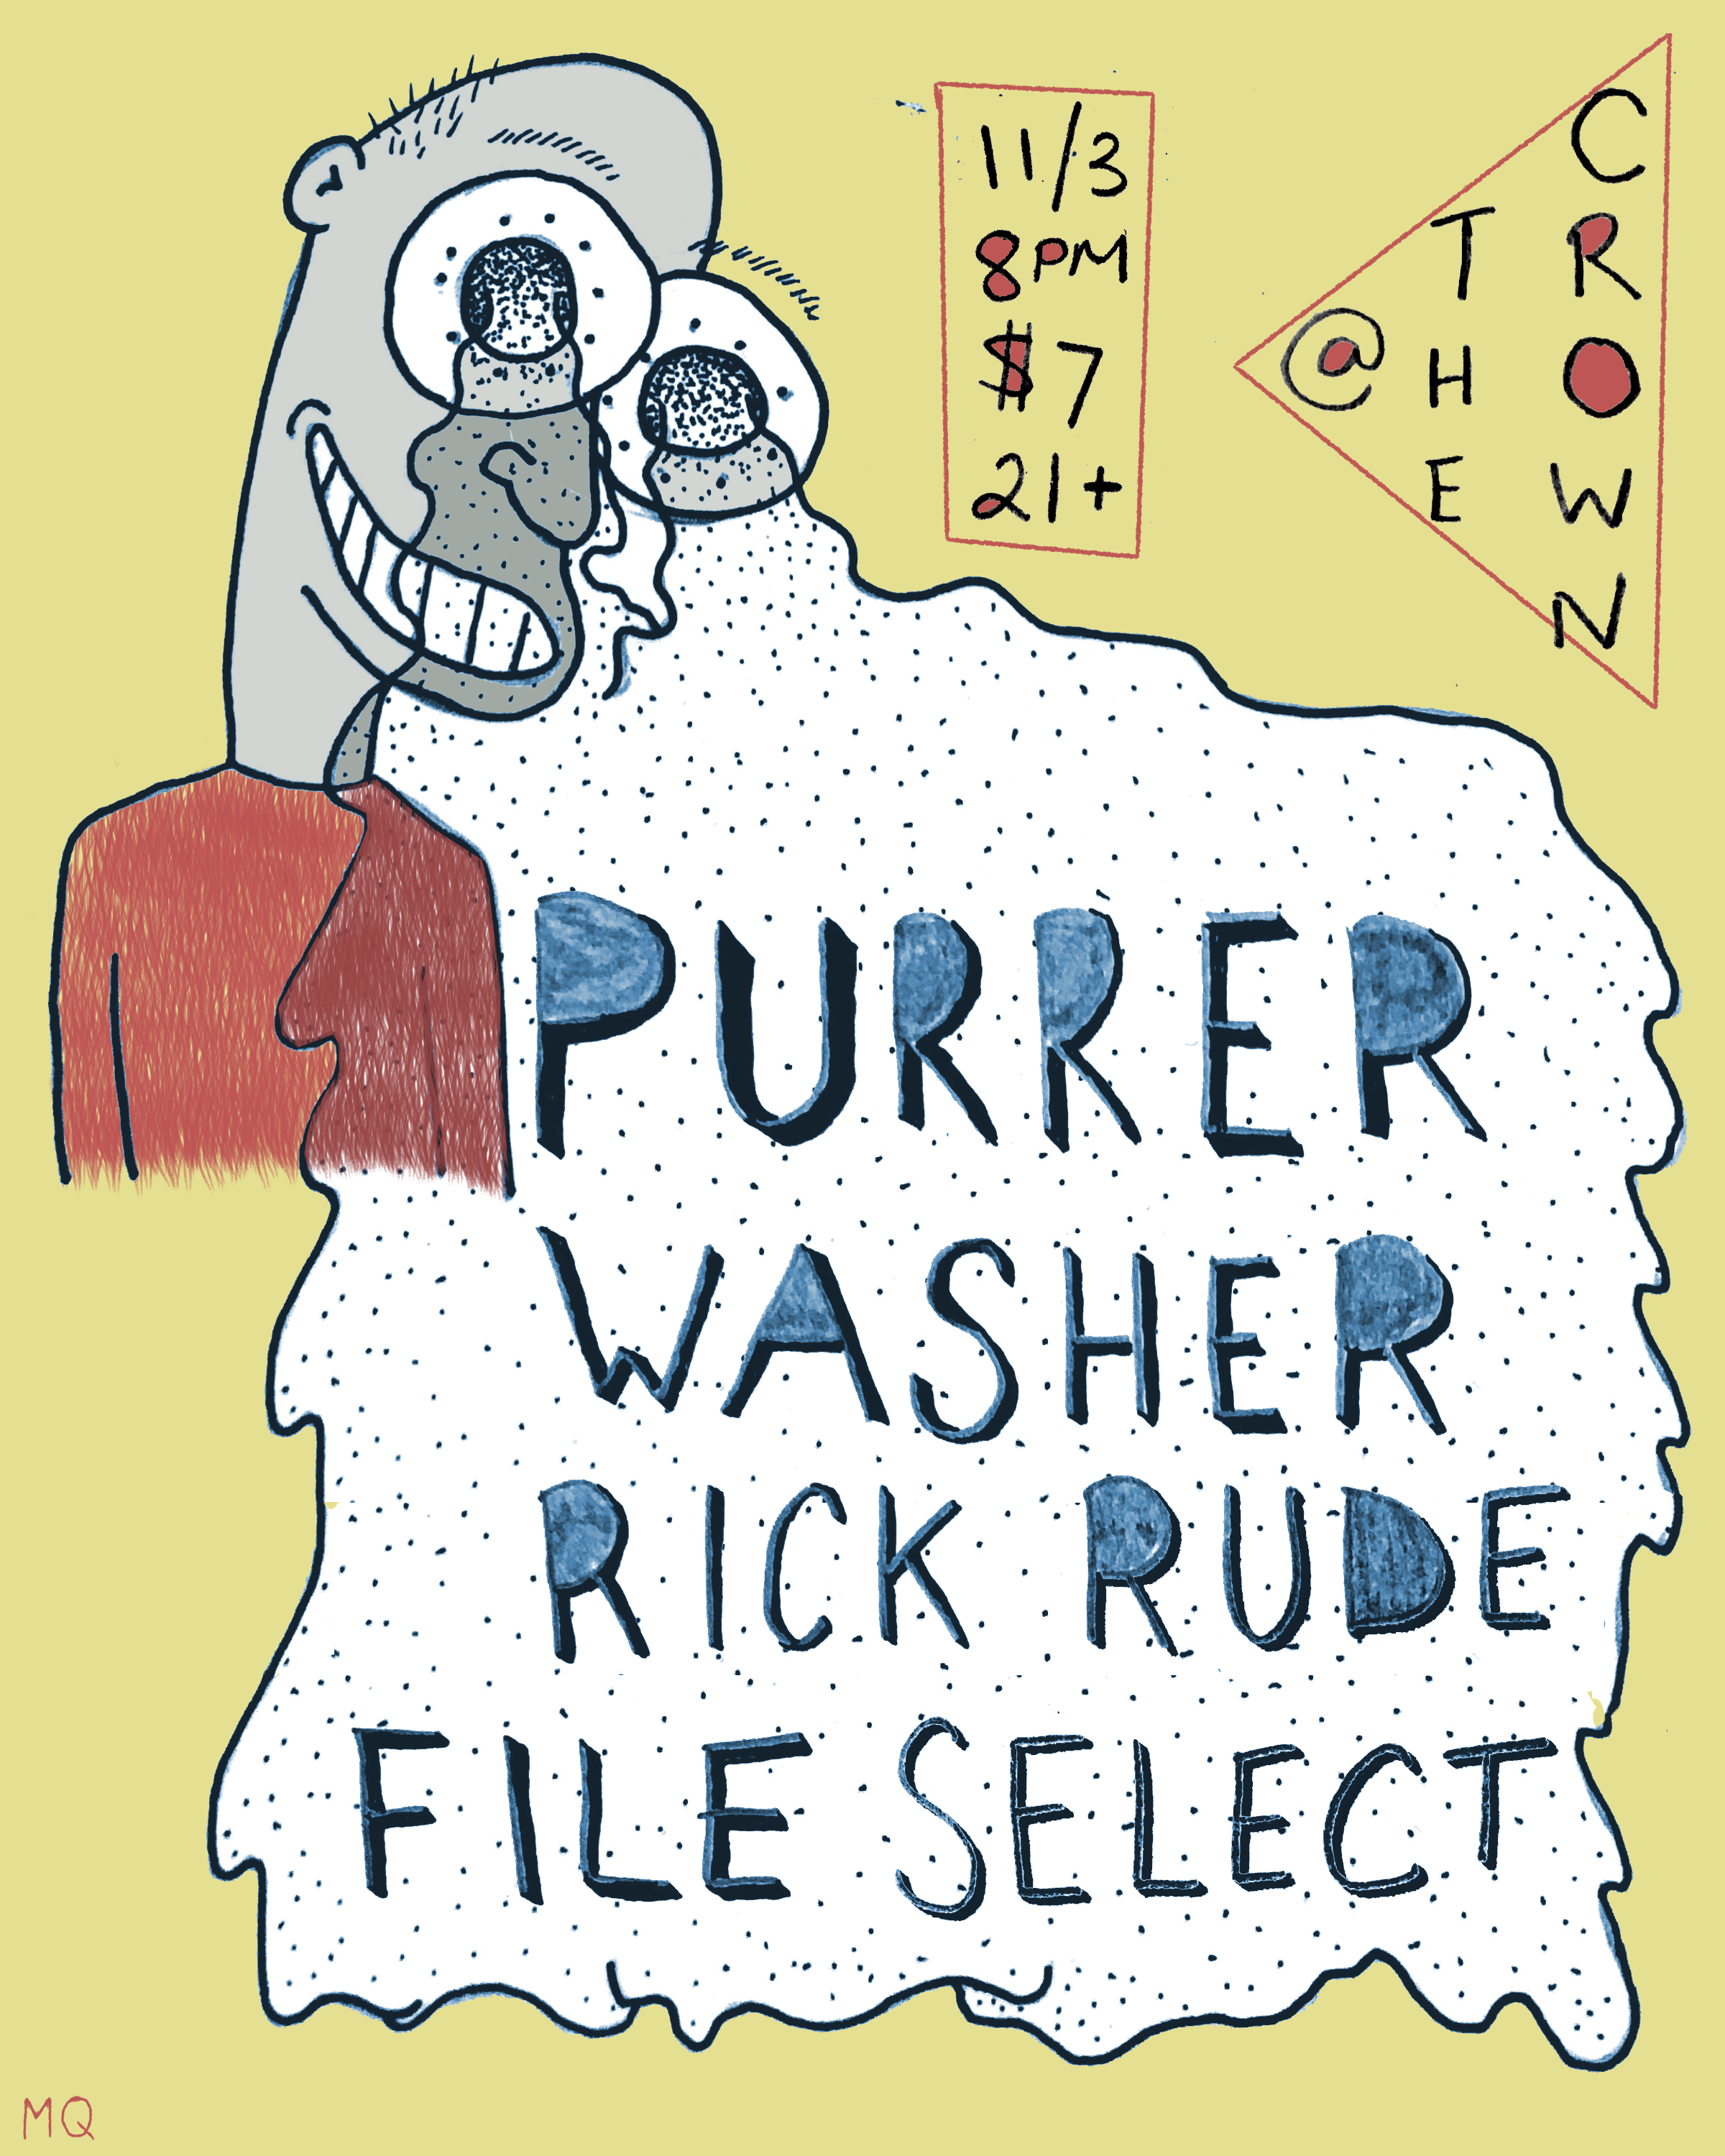 11/3
8PM
$7
21+
@
THE
CROWN
PURRER
WASHER
RICK RUDE
FILE SELECT
MQ